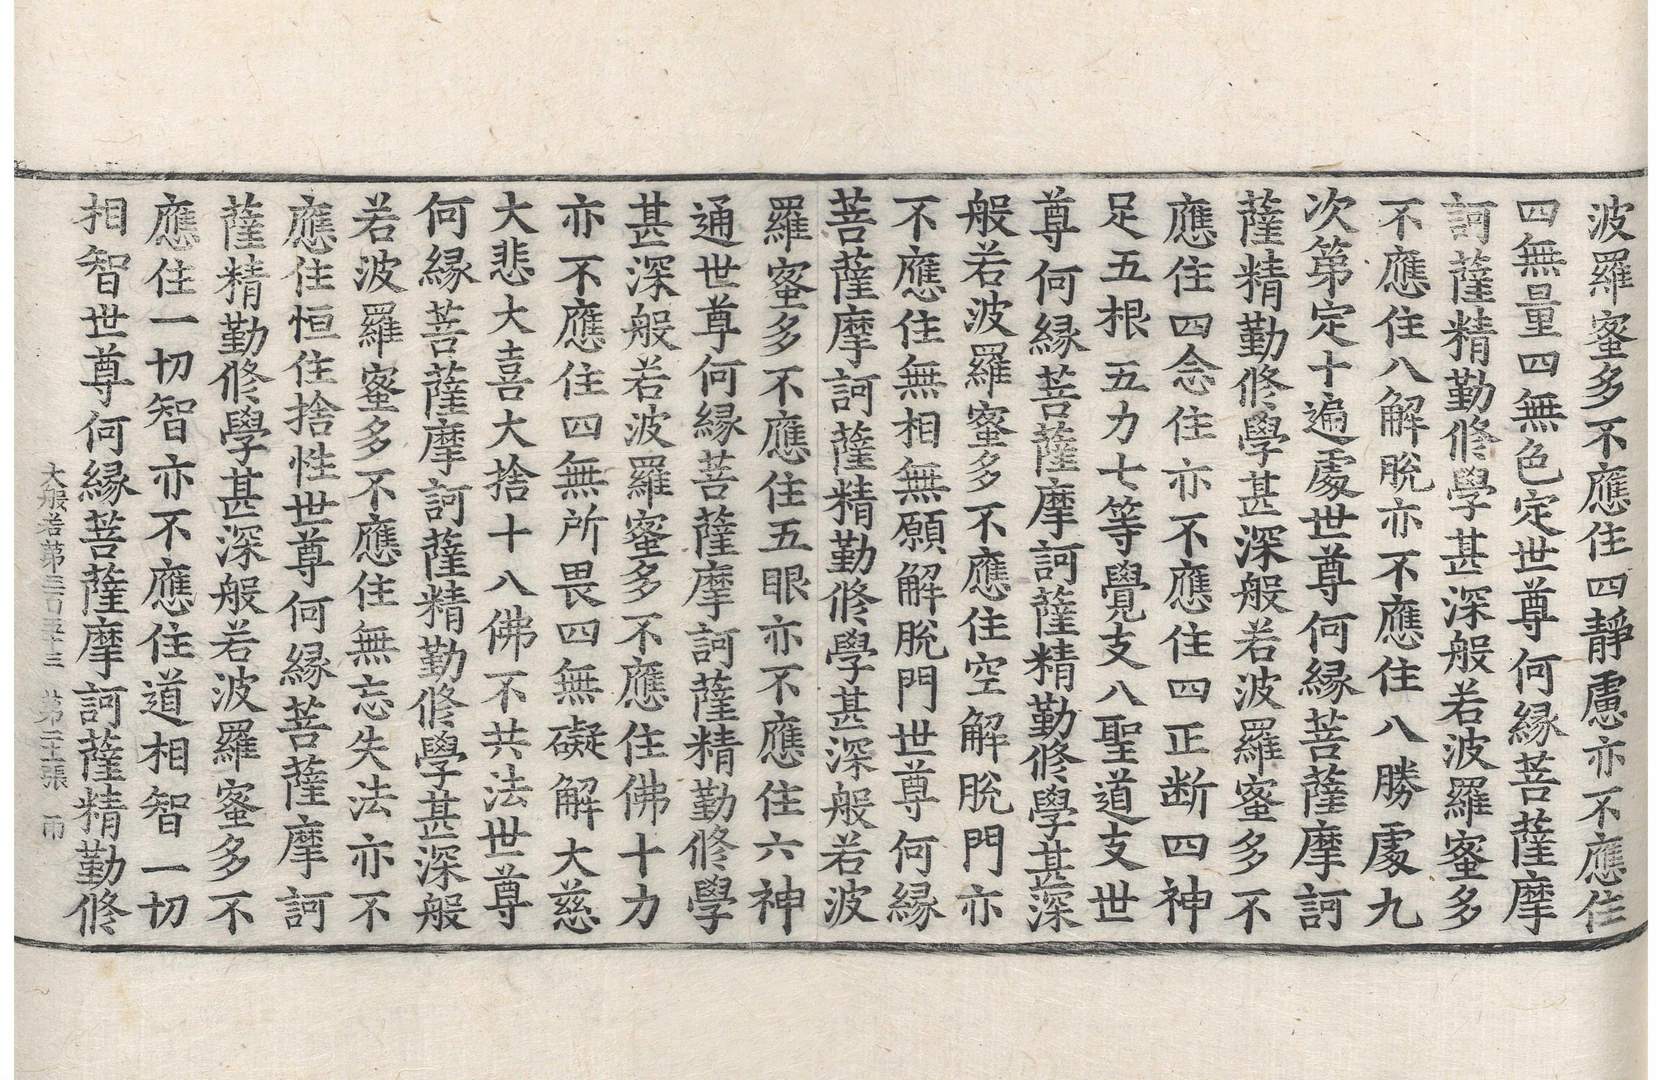 波羅蜜多不應住四靜慮亦不應住
四無量四無色定世尊何縁菩薩摩
訶薩精勤修學甚深般若波羅蜜多
不應住八解脫亦不應住八勝處九
次第定十遍處世尊何縁菩薩摩訶
薩精勤修學甚深般若波羅蜜多不
應住四念住亦不應住四正断四神
足五根五力七等覺支八聖道支世
尊何縁菩薩摩訶薩精勤修學甚深
般若波羅蜜多不應住空解脫門亦
不應住無相無願解脫門世尊何縁
菩薩摩訶薩精勤修學甚深般若波
羅蜜多不應住五眼亦不應住六神
通世尊何縁菩薩摩訶薩精勤修學
甚深般若波羅蜜多不應住佛十力
亦不應住四無所畏四無礙解大慈
大悲大喜大捨十八佛不共法世尊
何縁菩薩摩訶薩精勤修學甚深般
若波羅蜜多不應住無忘失法亦不
應住恒住捨性世尊何縁菩薩摩訶
薩精勤修學甚深般若波羅蜜多不
應住一切智亦不應住道相智一切
相智世尊何縁菩薩摩訶薩精勤修
大般若第三百五十三 第二十張